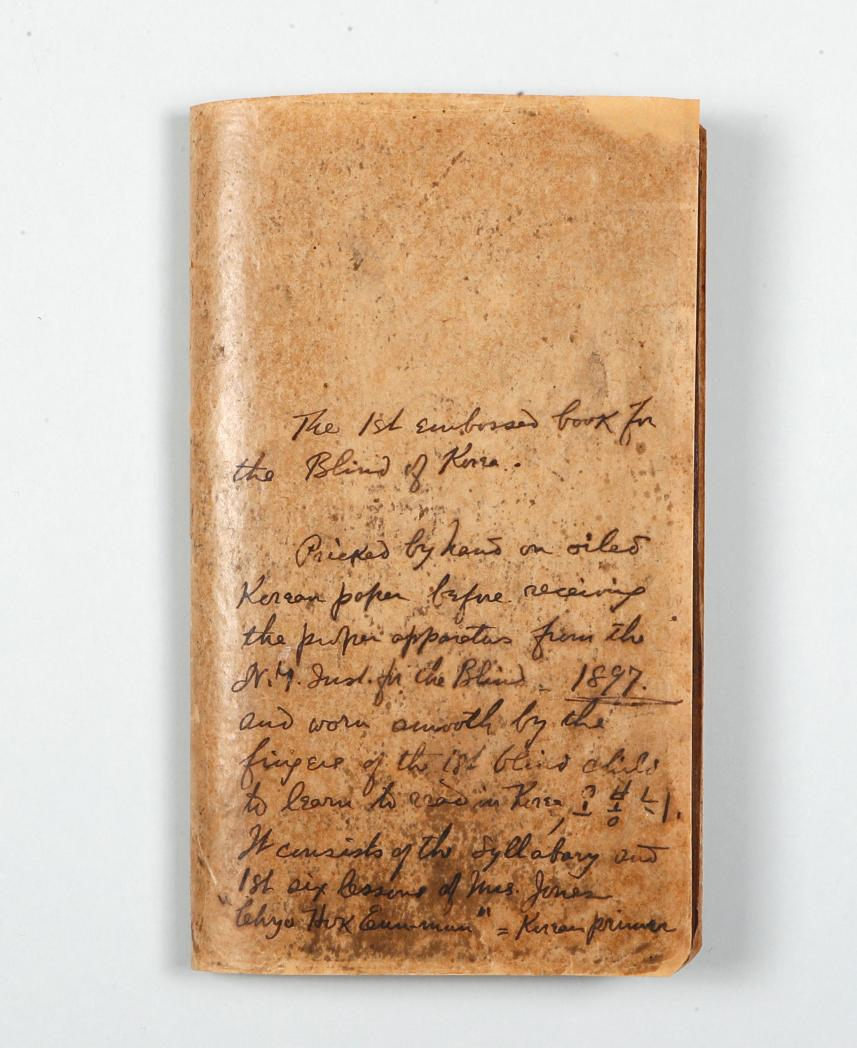 The 1st embossed book for
the Blind of Korea.
Pricked by hand on oiled
Korean paper before receiving
the proper apparatus from the
N.Y. Inst. for the Blind - 1897.
and worn smooth by the
fingers of the 1st blind child
to learn to read in Korea,
It consists of the Syllabary and
1st six lessons of Mrs. Jones
"Chyo Hok Eun-mun" = Korean primer